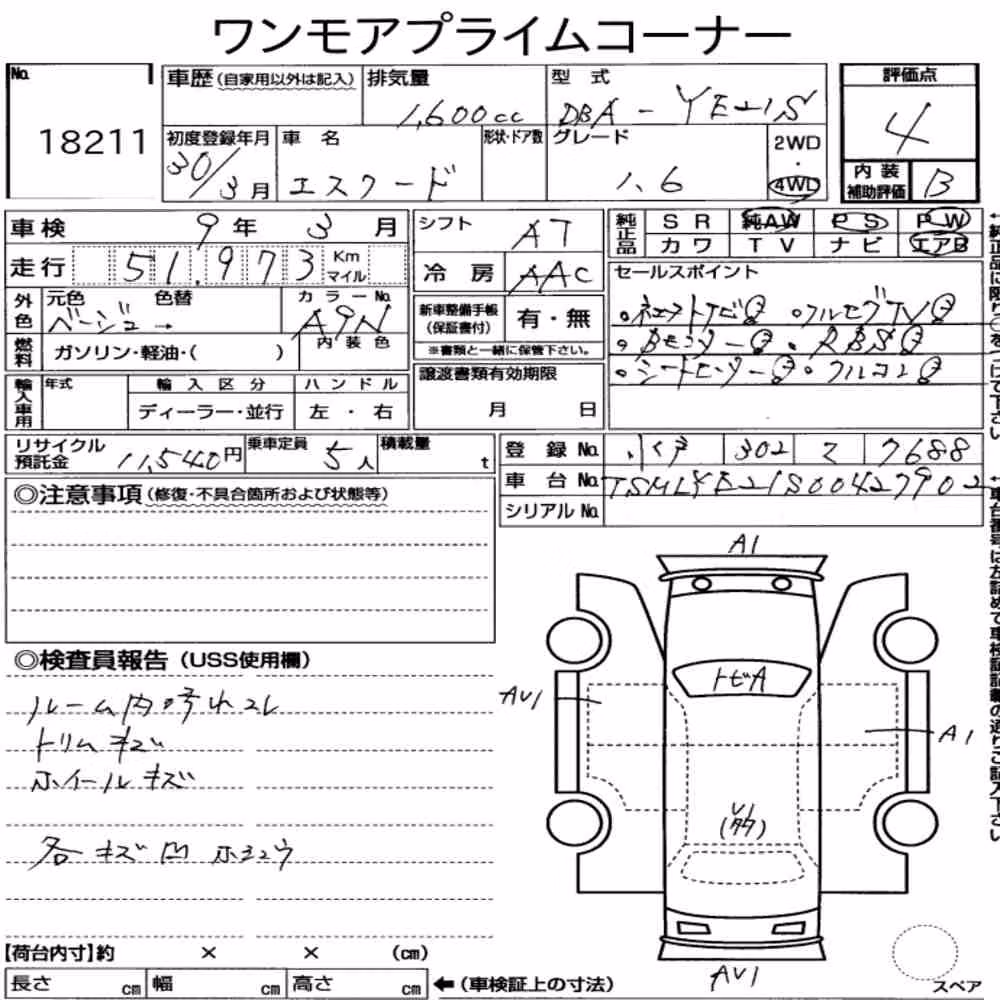 ワンモアプライムコーナー
No. 18211
車歴(自家用以外は記入) 排気量 1,600cc 型式 DBA-YE21S
初度登録年月 30/3月 車名 エスクード 形状・ドア数 グレード 1.6 2WD・4WD
評価点 4
内装補助評価 B
車検 9年 3月
走行 51,973 Km マイル
外色 元色 ベージュ 色替 カラーNo. A9N
燃料 ガソリン・軽油・( ) 内装色
輸入車用 年式 輸入区分 ディーラー・並行 ハンドル 左・右
シフト AT
冷房 AAC
新車整備手帳(保証書付) 有・無
※書類と一緒に保管下さい。
譲渡書類有効期限 月 日
純正品 SR 純AW PS PW
カワ TV ナビ エアB
セールスポイント
・フルセグTV
・RBS
・シートヒーター
リサイクル預託金 11,540円 乗車定員 5人 積載量 t
登録No. 302 7688
車台No. TSMLYE21S00427902
シリアルNo.
◎注意事項(修復・不具合箇所および状態等)
◎検査員報告(USS使用欄)
ルーム内
トリムキズ
ホイールキズ
各キズ凹
【荷台内寸】約 × × (cm)
長さ cm 幅 cm 高さ cm ←(車検証上の寸法)
A1
トビA
AV1
A1
AV1
スペア